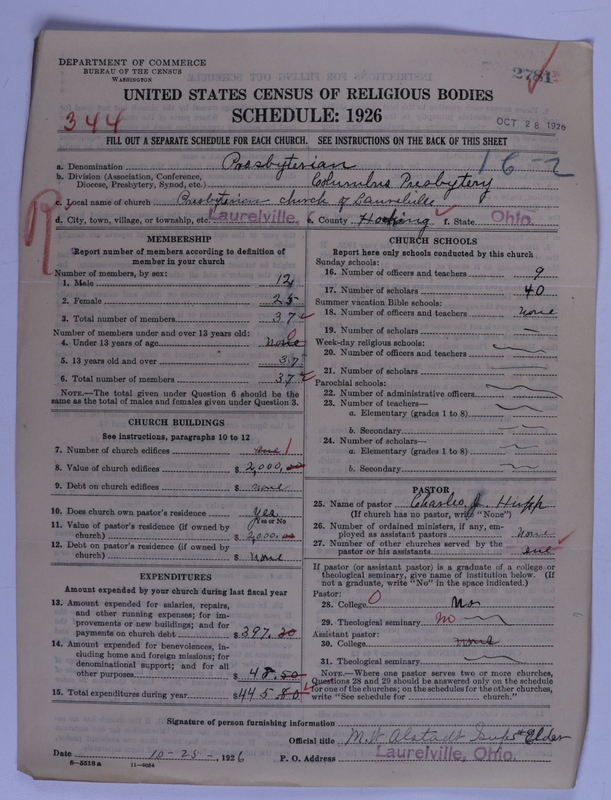 DEPARTMENT OF COMMERCE
BUREAU OF THE CENSUS
WASHINGTON
2781
UNITED STATES CENSUS OF RELIGIOUS BODIES
SCHEDULE: 1926
344
OCT 28 1926
FILL OUT A SEPARATE SCHEDULE FOR EACH CHURCH. SEE INSTRUCTIONS ON THE BACK OF THIS SHEET
16-2
a. Denomination Presbyterian
b. Division (Association, Conference, Diocese, Presbytery, Synod, etc.) Columbus Presbytery
c. Local name of church Presbyterian church of Laurelville
d. City, town, village, or township, etc. Laurelville, e. County Hocking f. State Ohio.
R
MEMBERSHIP
Report number of members according to definition of
member in your church
Number of members, by sex:
1. Male 12
2. Female 25
3. Total number of members 37
Number of members under and over 13 years old:
4. Under 13 years of age None 0
5. 13 years old and over 37
6. Total number of members 37
NOTE.—The total given under Question 6 should be
same as the total of males and females given under Question 3.
CHURCH BUILDINGS
See instructions, paragraphs 10 to 12
7. Number of church edifices one 1
8. Value of church edifices $ 2,000.00
9. Debt on church edifices $ none
10. Does church own pastor's residence? yea
Yes or No
11. Value of pastor's residence (if owned by
church) $ 2,000.00
12. Debt on pastor's residence (if owned by
church) $ None
EXPENDITURES
Amount expended by your church during last fiscal year
13. Amount expended for salaries, repairs,
and other running expenses; for im-
provements or new buildings; and for
payments on church debt $ 397.30
14. Amount expended for benevolences, in-
cluding home and foreign missions; for
denominational support; and for all
other purposes $ 48.50
15. Total expenditures during year $ 445.80
CHURCH SCHOOLS
Report here only schools conducted by this church
Sunday schools:
16. Number of officers and teachers 9
17. Number of scholars 40
Summer vacation Bible schools:
18. Number of officers and teachers None
19. Number of scholars
Week-day religious schools:
20. Number of officers and teachers
21. Number of scholars
Parochial schools:
22. Number of administrative officers
23. Number of teachers—
a. Elementary (grades 1 to 8)
b. Secondary
24. Number of scholars—
a. Elementary (grades 1 to 8)
b. Secondary
PASTOR
25. Name of pastor Charles J. Hupp
(If church has no pastor, write "None")
26. Number of ordained ministers, if any, em-
ployed as assistant pastors None
27. Number of other churches served by the
pastor or his assistants one
If pastor (or assistant pastor) is a graduate of a college or
theological seminary, give name of institution below. (If
not a graduate, write "No" in the space indicated.)
Pastor:
28. College 0 No
29. Theological seminary No
Assistant pastor:
30. College none
31. Theological seminary
NOTE.—Where one pastor serves two or more churches,
Questions 28 and 29 should be answered only on the schedule
for one of the churches; on the schedules for the other churches,
write "See schedule for church."
Signature of person furnishing information
Official title M. W. Alstadt Supt & Elder
Date 10-25-, 1926 P. O. Address Laurelville, Ohio.
8-5518a 11-9034